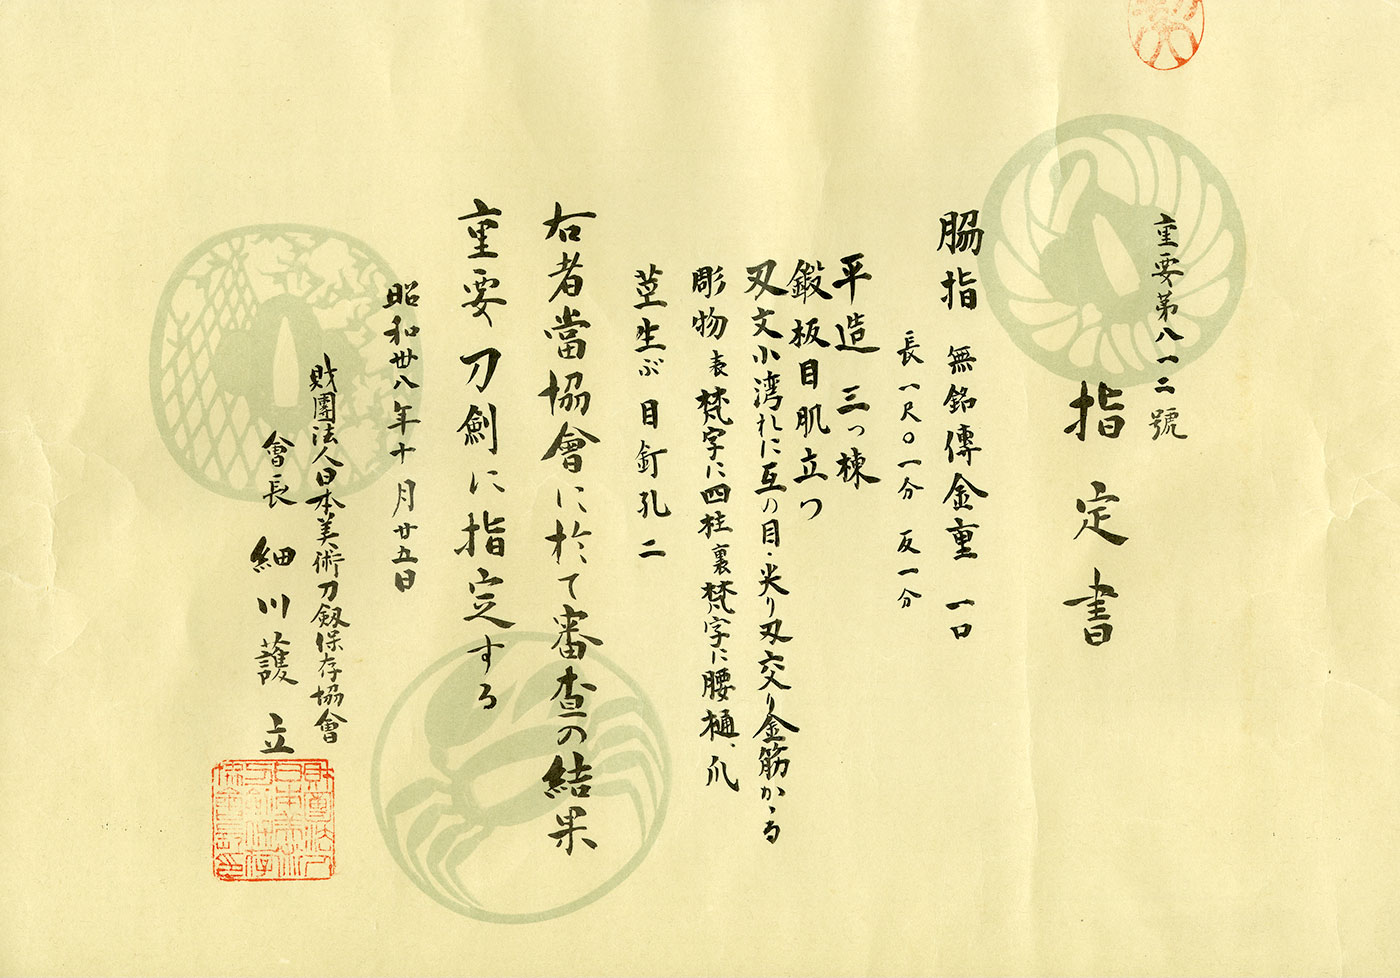 重要第八一二號
指定書
脇指 無銘傳金重 一口
長一尺〇一分 反一分
平造 三つ棟
鍛板目肌立つ
刃文小湾れに互の目・尖り刃交り金筋かゝる
彫物 表 梵字に四柱 裏 梵字に腰樋、爪
茎生ぶ 目釘孔 二
右者當協會に於て審査の結果
重要刀劍に指定する
昭和卅八年十月廿五日
財團法人日本美術刀劔保存協會
會長 細川護立